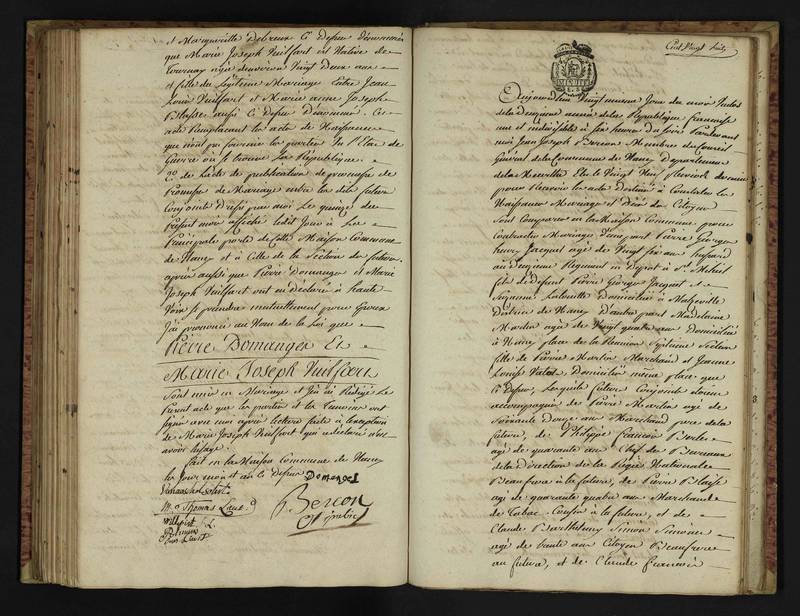 et Margueritte Debreux Ci Dessus dénommés
que Marie Joseph Vuilfart est Native de
Tournay agée denviron Vingt Deux ans
et fille du Légitime Mariage Entre Jean
Louis Vuilfart et Marie anne Joseph
aussi Ci Dessus Dénommé. Cet
acte Remplacant les acte de Naissance
que n'ont pu fournir les parties vu l'Etat de
Guerre où se trouve La République.
3° de Lacte de publication de promesse de
Promesse de Mariage entre les dits futurs
Conjoints Dressé par moi Le quinze du
Présent mois affiché ledit Jour à La
Principale porte de Cette Maison Commune
de Nancy et à Celle de la Section du futur.
après aussi que Pierre Domanger et Marie
Joseph Vuilfart ont eu Déclaré à haute
Voix se prendre mutuellement pour Epoux
J'ai prononcé au Nom de la Loi que
Pierre Domanger Et
Marie Joseph Vuilfart
Sont unis en Mariage et J'ai Rédigé Le
Présent acte que les parties et les Temoins ont
signé avec moi après lecture faite à lexception
de Marie Joseph Vuilfart qui a déclaré n'en
avoir l'usage.
fait en la Maison Commune de Nancy
les Jour mois et an Ci dessus Domanget
Thomas
Bercon
Off. public
Cent Vingt huit
Aujourdhui Vingt unième Jour du mois
de la Deuxième année de la République francaise
une et indivisible à six heures du soir Pardevant
moi Jean Joseph Bercon Membre du Conseil
Général de la Commune de Nancy Département
de la Meurthe Elu le Vingt
pour Recevoir les actes Destinés à Constater les
Naissances Mariages et Décès des Citoyens
Sont Comparus en la Maison Commune pour
Contracter Mariage D'une part Pierre Georges
henry Jacquet agé de Vingt six ans hussard
au Régiment en Dépot à St. Mihiel
fils de Défunt Pierre Georges Jacquet et
Suzanne domiciliée à Malzeville
District de Nancy D'autre part Madelaine
Martin agée de Vingt quatre ans domiciliée
à Nancy place de la Réunion Septieme Section
fille de Pierre Martin Marchand et Jeanne
Louise Domiciliés même place que
Ci Dessus, Lesquels futurs Conjoints étoient
accompagnés de Pierre Martin agé de
Soixante Douze ans Marchand père de la
future, de Philippe francois
agé de quarante ans Chef de Bureaux
de la Direction de la Régie Nationale
Beaufrere à la future, de Pierre Blaise
agé de quarante quatre ans Marchand
de Tabac Cousin à la future, et de
Claude Barthelemy Simon
agé de trente ans Citoyen Beaufrere
au futur, et de Claude francois